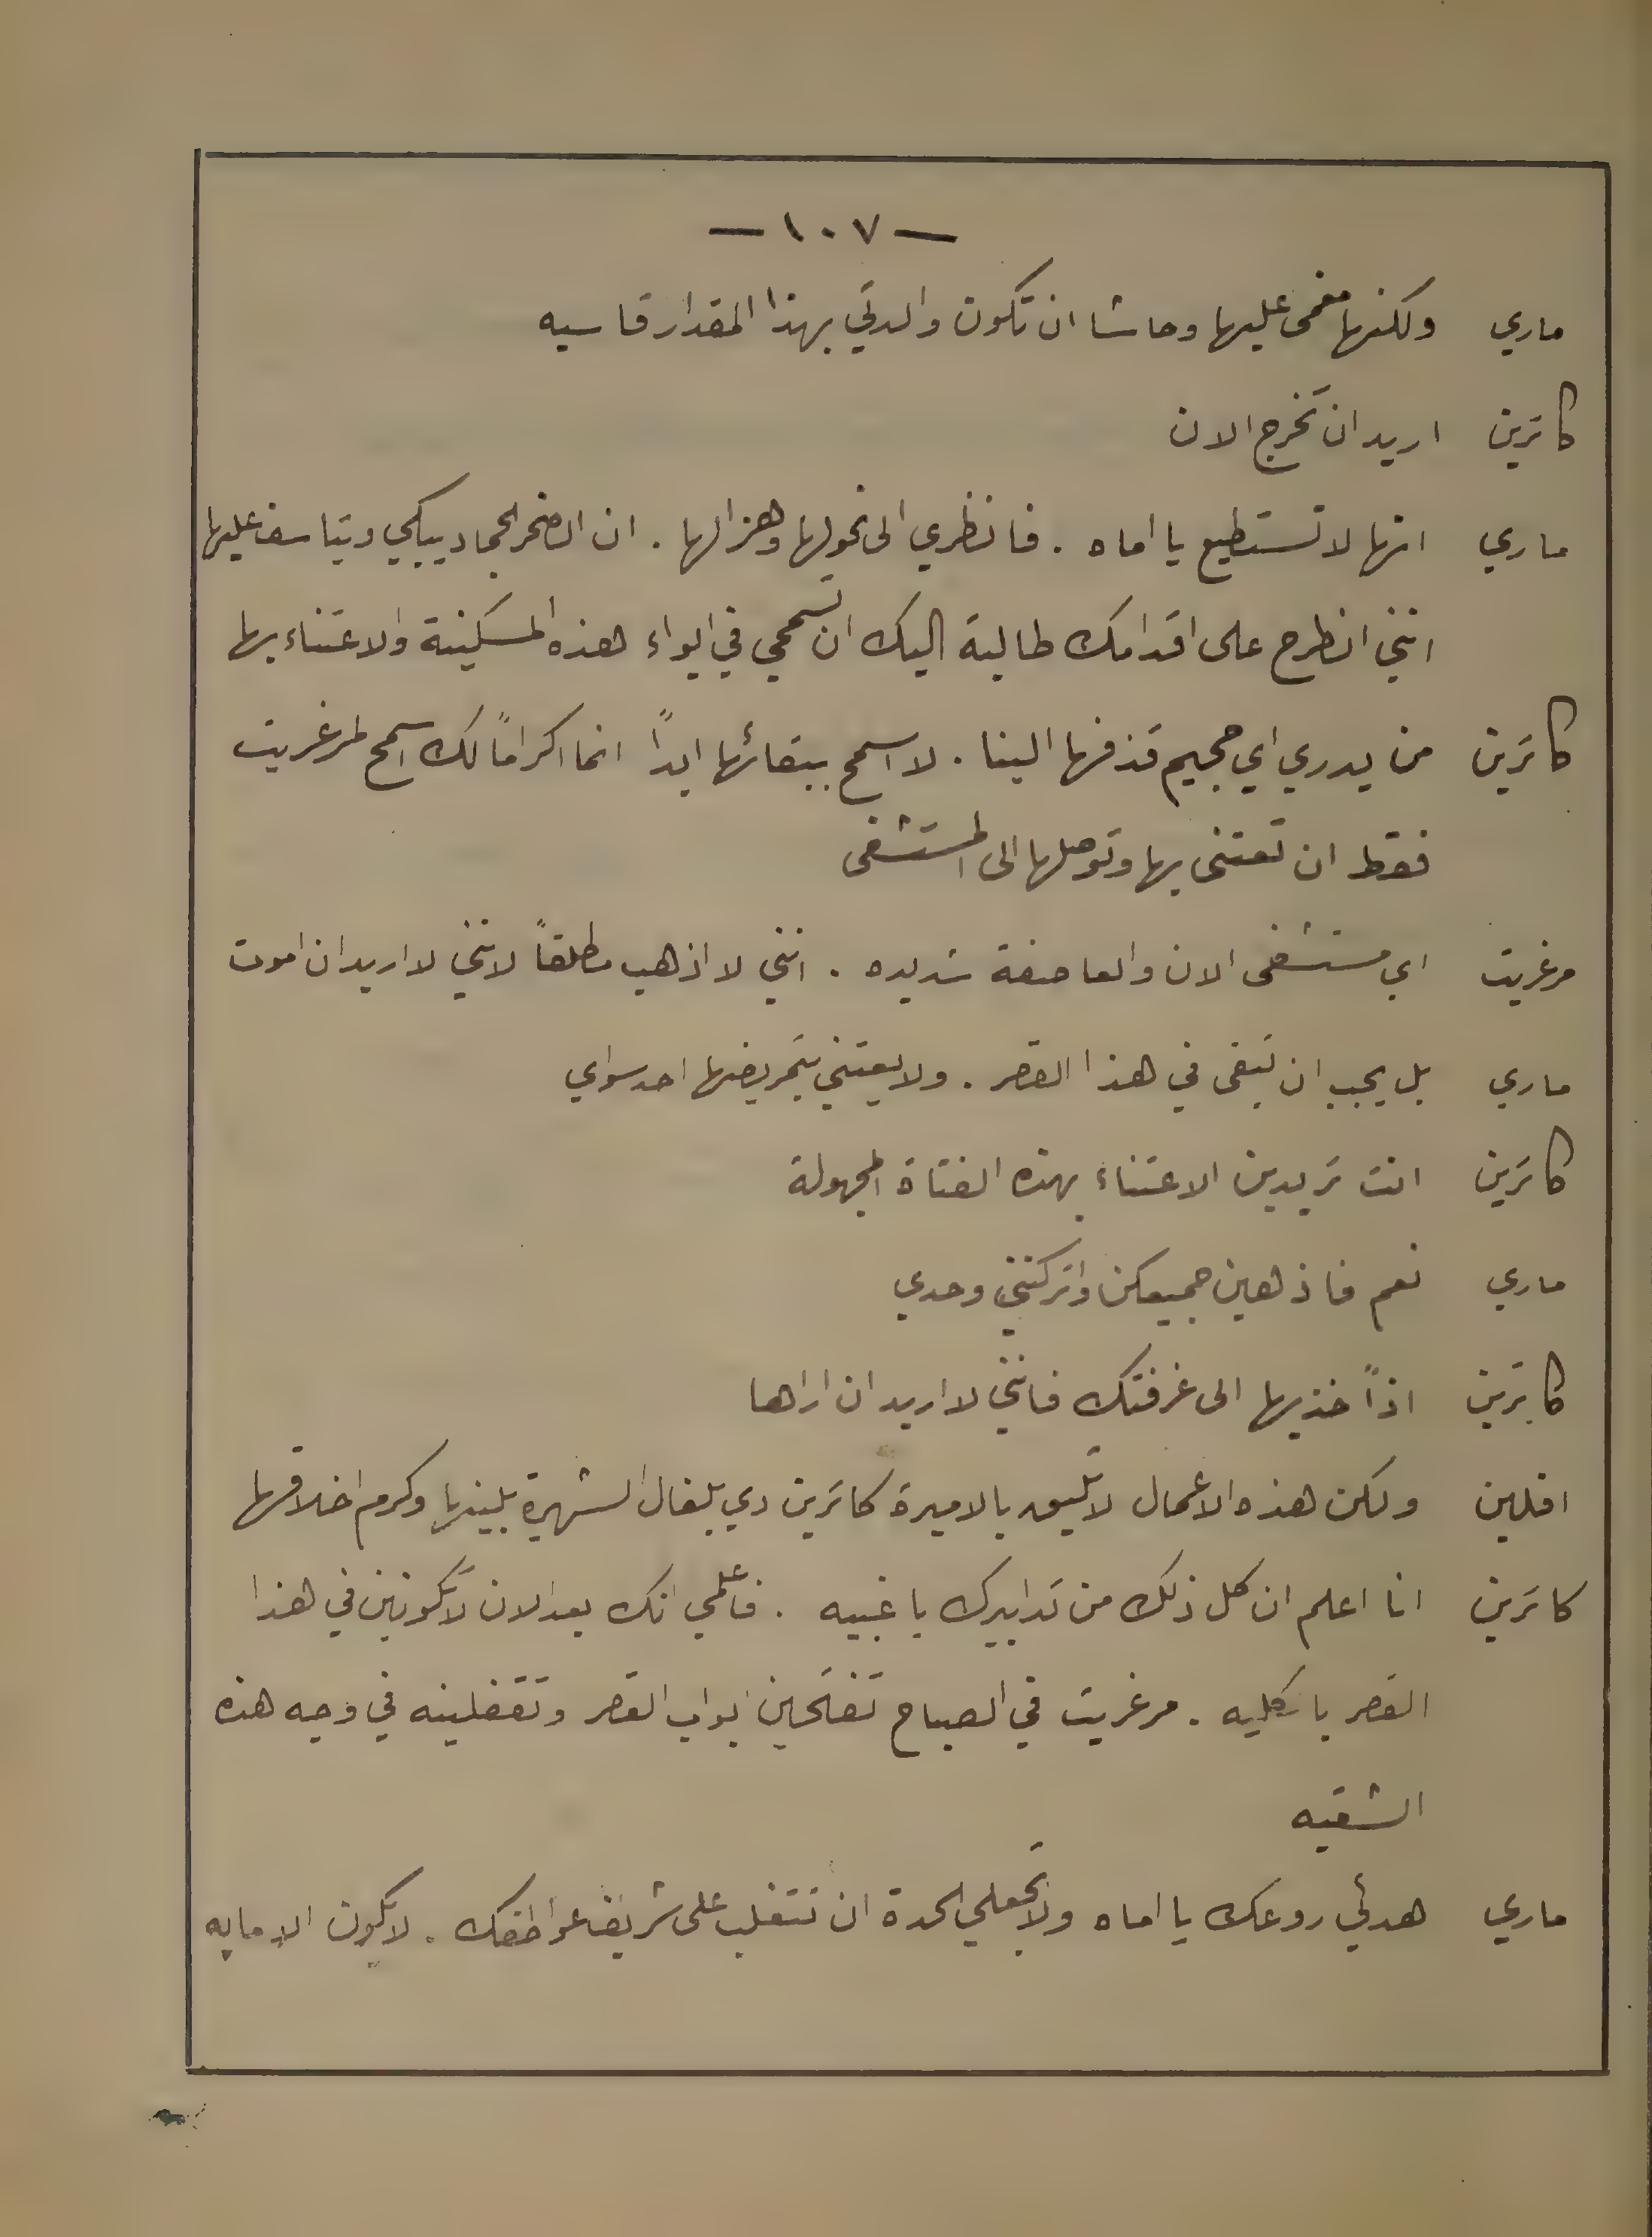 — ١٠٧ —
ماري ولكنها مغمى عليها وحاشا ان تكون والدتي بهذا المقدار قاسيه
كاترين اريد ان تخرج الان
ماري انها لا تستطيع يا اماه . فانظري الى نحولها وهزالها . ان الصخر الجماد يبكي ويتاسف عليها
انني انطرح على اقدامك طالبة اليك ان تسمحي في ايواء هذه المسكينة والاعتناء بها
كاترين من يدري اي جحيم قذفها الينا . لا اسمح ببقائها ابداً انما اكراماً لك اسمح لمرغريت
فقط ان تعتني بها وتوصلها الى المستشفى
مرغريت اي مستشفى الان والعاصفة شديده . انني لا اذهب مطلقاً لانني لا اريد ان اموت
ماري بل يجب ان تبقى في هذا القصر . ولا يعتني بتمريضها احد سواي
كاترين انت تريدين الاعتناء بهذه الفتاة المجهولة
ماري نعم فاذهبن جميعكن واتركنني وحدي
كاترين اذاً خذيها الى غرفتك فانني لا اريد ان اراها
افلين ولكن هذه الاعمال لا تليق بالاميرة كاترين دي بلغال الشهيرة بلينها وكرم اخلاقها
كاترين انا اعلم ان كل ذلك من تدابيرك يا غبيه . فاعلمي انك بعد الان لا تكونين في هذا
القصر بالكليه . مرغريت في الصباح تفتحين ابواب القصر وتقفلينه في وجه هذه
الشقيه
ماري هدئي روعك يا اماه ولا تجعلي الحدة ان تتغلب على شريف عواطفك . لا يكون الا مابه